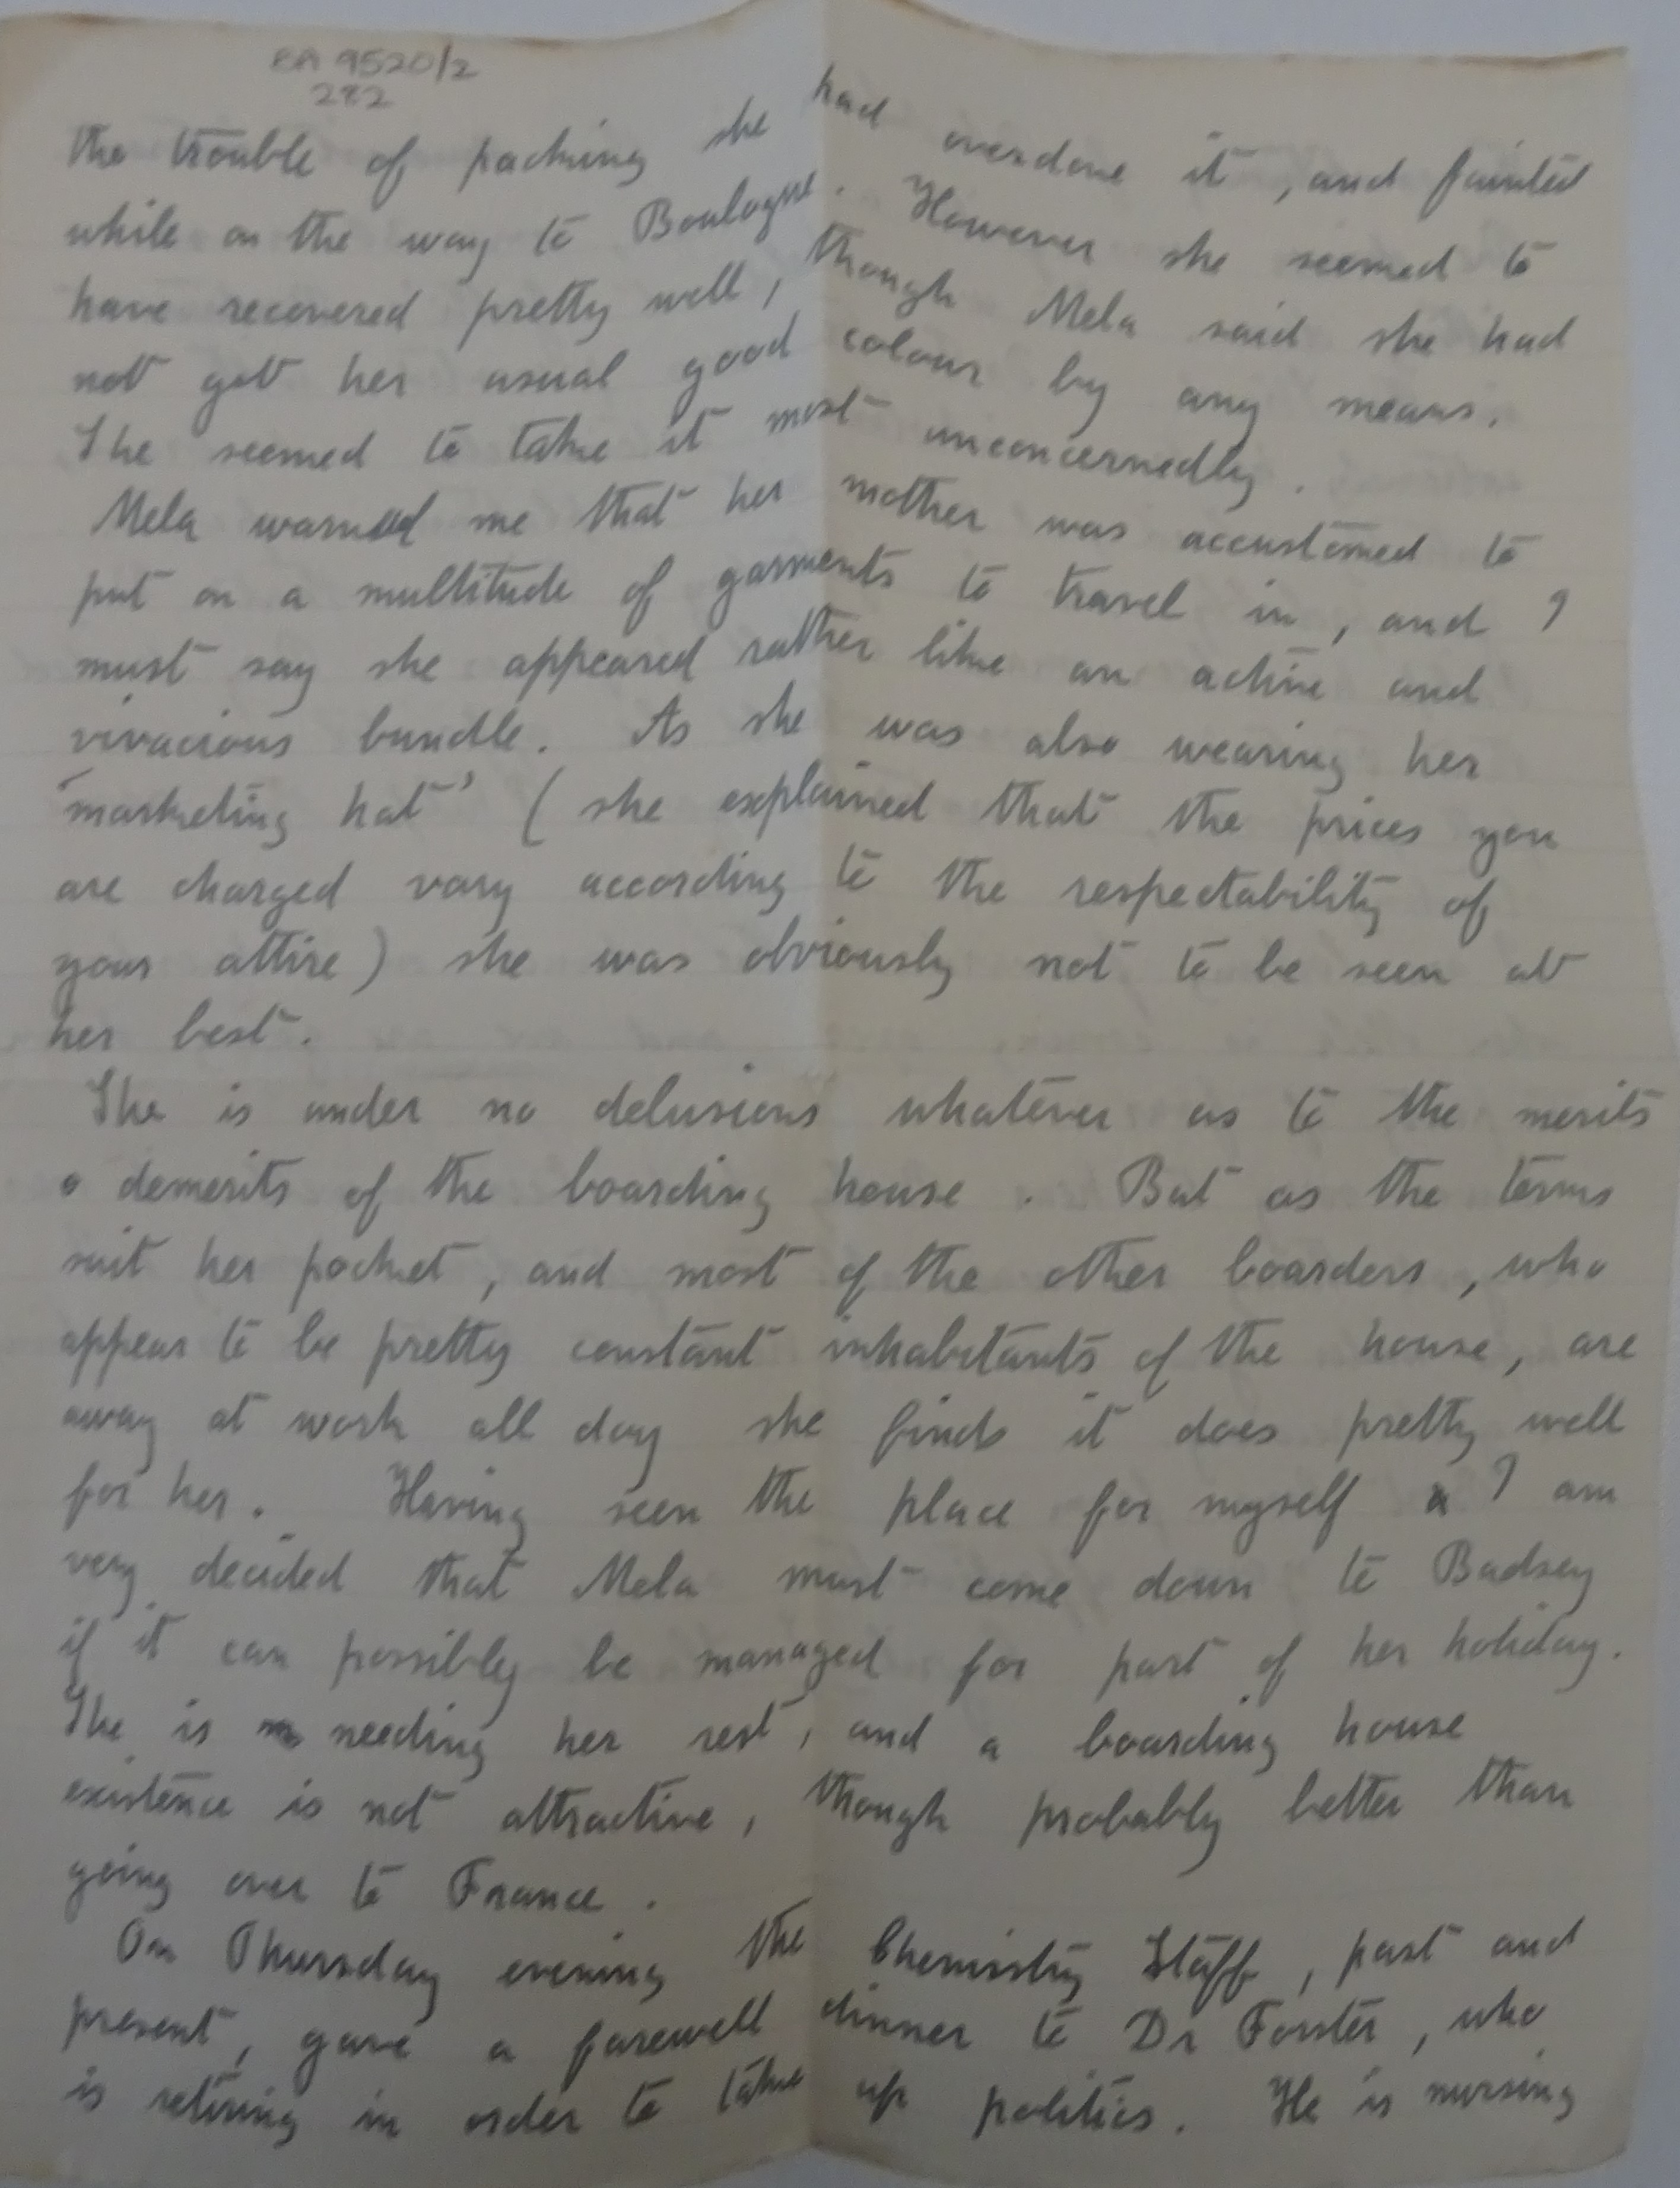 EA 9520/2
282
the trouble of packing she had overdone it, and fainted
while on the way to Boulogne. However she seemed to
have recovered pretty well, though Mela said she had
not got her usual good colour by any means.
She seemed to take it most unconcernedly.
Mela warned me that her mother was accustomed to
put on a multitude of garments to travel in, and I
must say she appeared rather like an active and
vivacious bundle. As she was also wearing her
'marketing hat' (she explained that the prices you
are charged vary according to the respectability of
your attire) she was obviously not to be seen at
her best.
She is under no delusions whatever as to the merits
o demerits of the boarding house. But as the terms
suit her pocket, and most of the other boarders, who
appear to be pretty constant inhabitants of the house, are
away at work all day she finds it does pretty well
for her. Having seen the place for myself I am
very decided that Mela must come down to Badsey
if it can possibly be managed for part of her holiday.
She is needing her rest, and a boarding house
existence is not attractive, though probably better than
going over to France.
On Thursday evening the Chemistry Staff, past and
present, gave a farewell dinner to Dr Forster, who
is retiring in order to take up politics. He is nursing